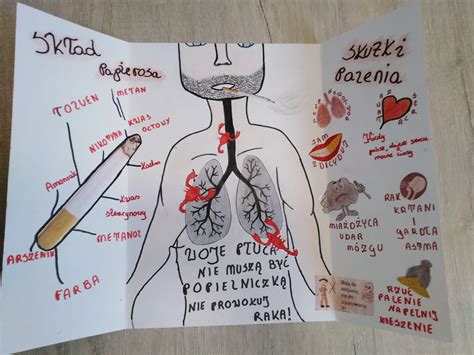 SKŁAD
papierosa
METAN
TOLUEN
KWAS
OCTOWY
NIKOTYNA
Amoniak
Kadm
KWAS
stearynowy
METANOL
ARSZENIK
FARBA
TWOJE PŁUCA
NIE MUSZĄ BYĆ
POPIELNICZKĄ
NIE PROWOKUJ
RAKA!
SKUTKI
PALENIA
SAM
DECYDUJ
Kiedy
palisz, serce
MIAŻDŻYCA
UDAR
MÓZGU
RAK
KRTANI
I
GARDŁA
ASTMA
RZUĆ
PALENIE
NAPEŁNIJ
KIESZENIE